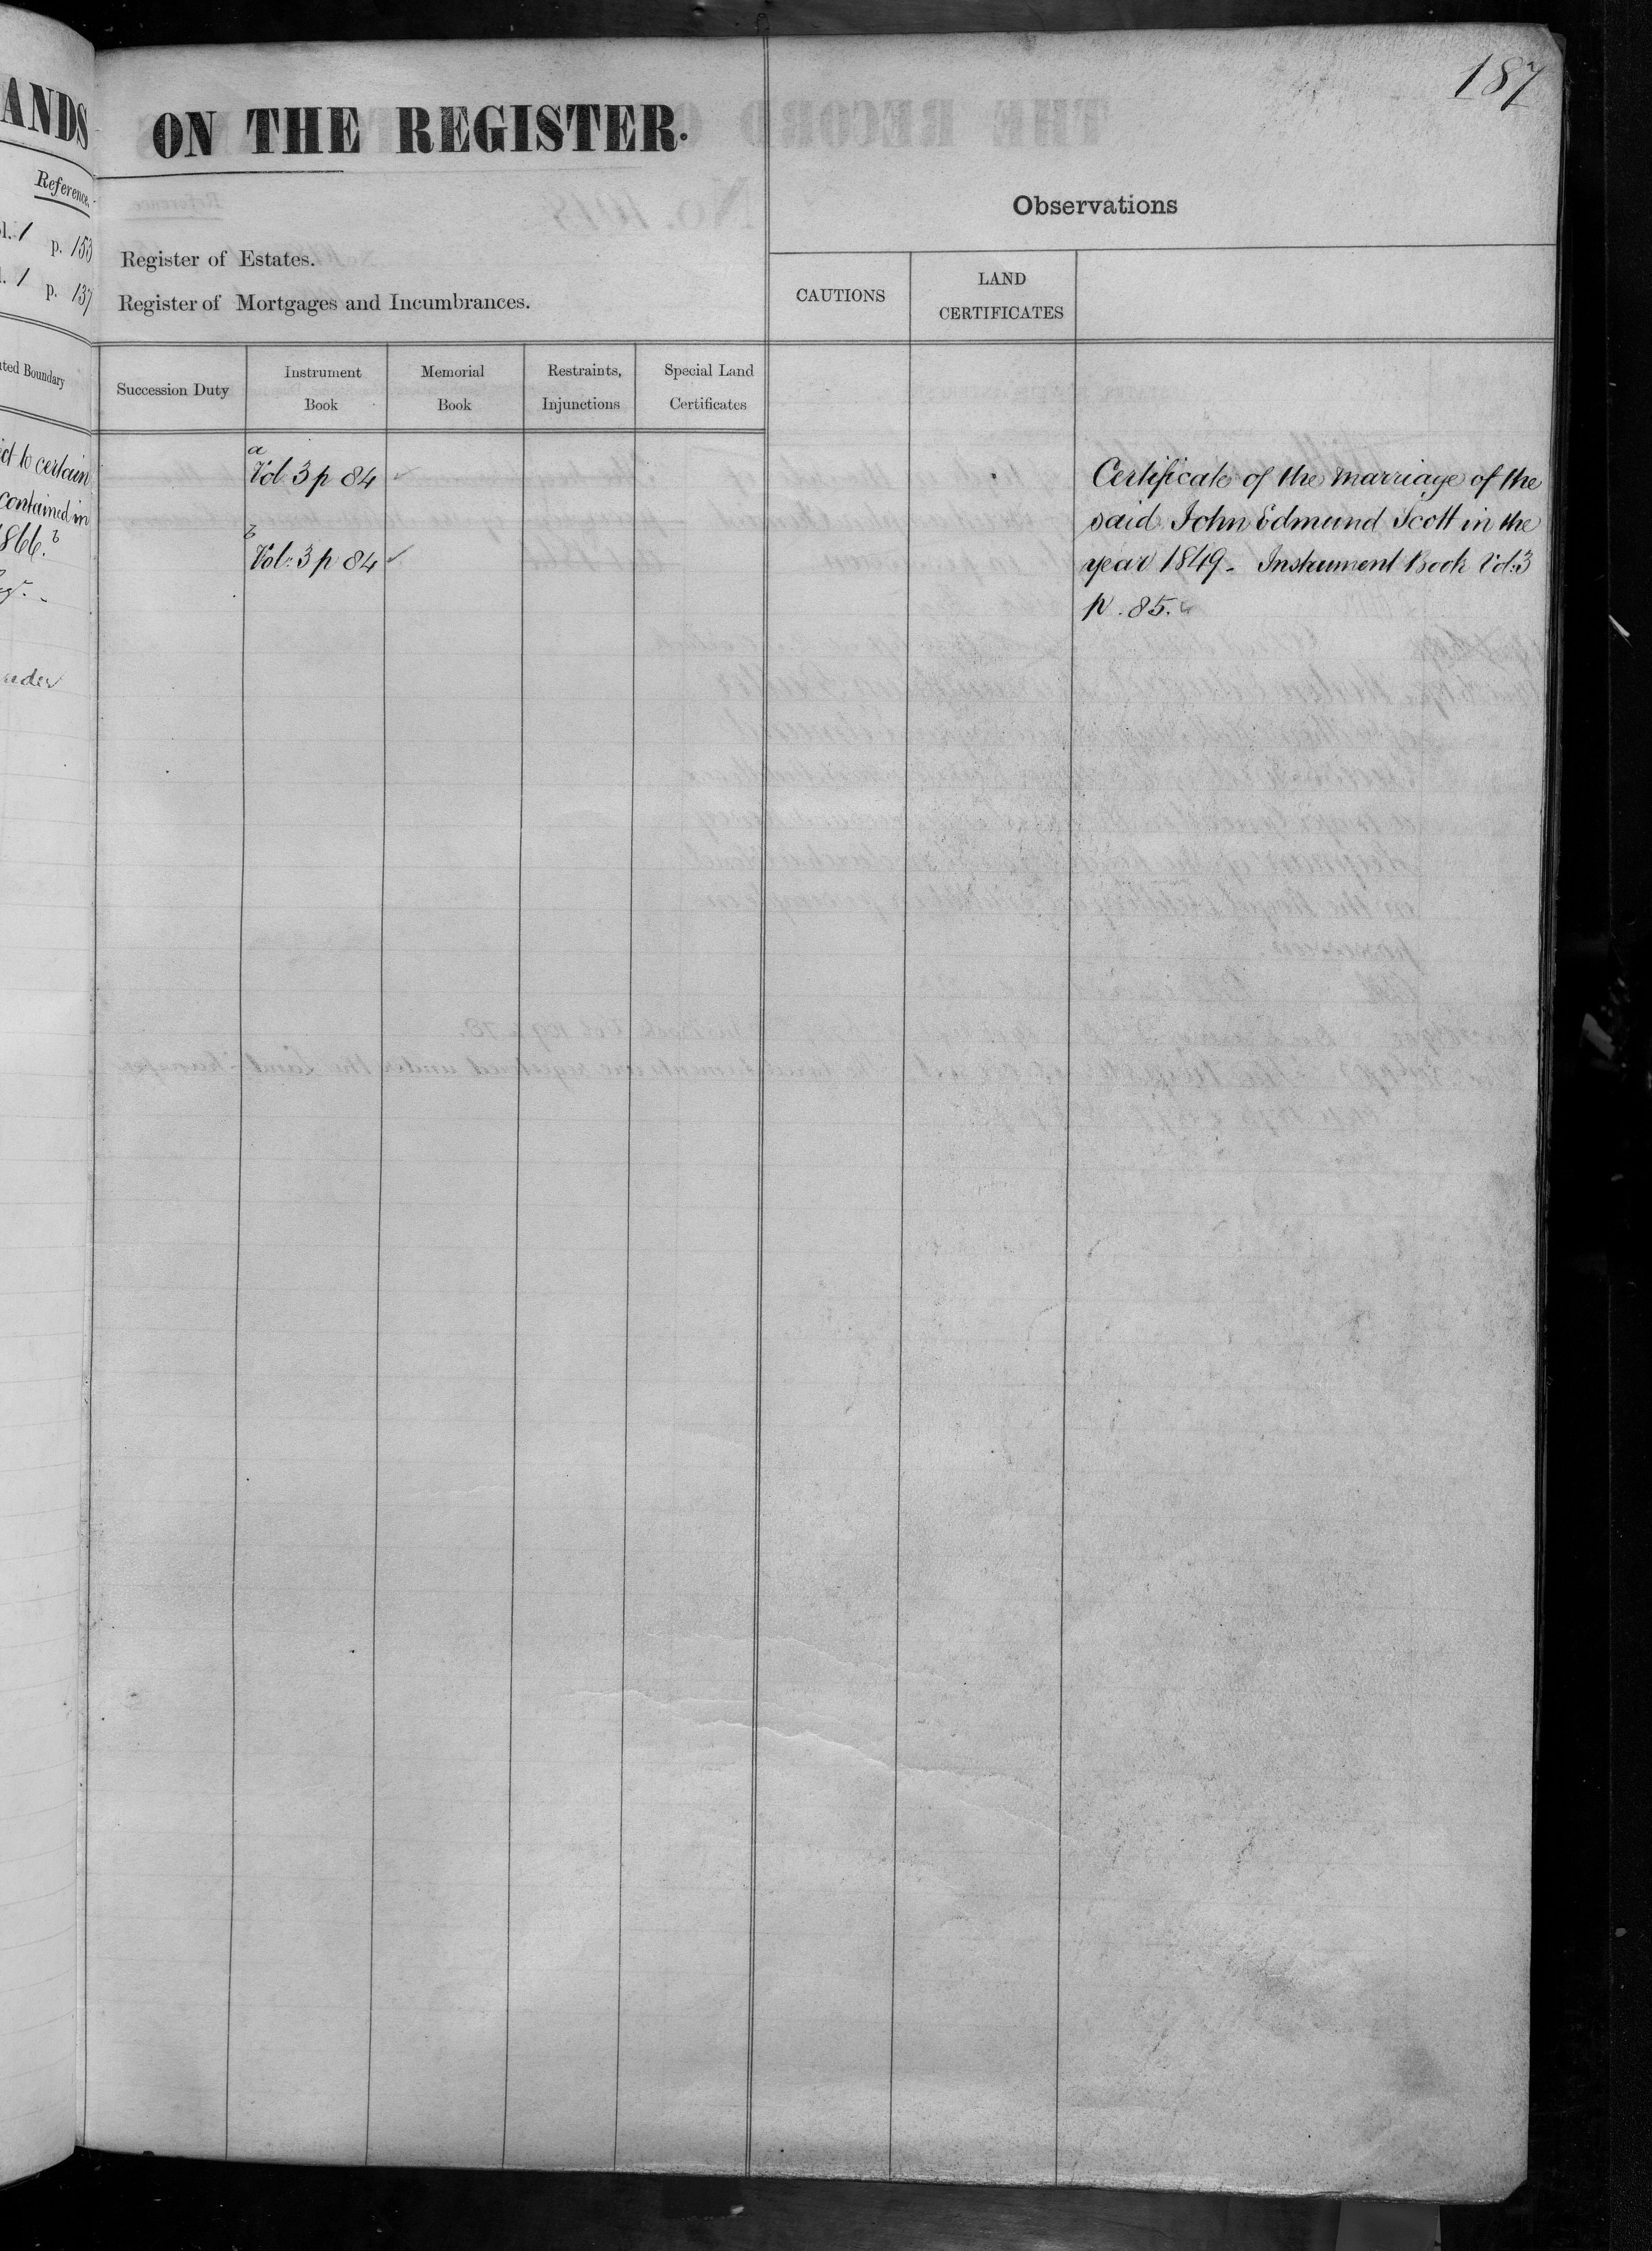 187
ANDS
ON THE REGISTER.
Reference.
Observations
p. 153
Register of Estates.
p. 137
Register of Mortgages and Incumbrances.
CAUTIONS
LAND
CERTIFICATES
Boundary
Succession Duty
Instrument
Book
Memorial
Book
Restraints,
Injunctions
Special Land
Certificates
to certain
contained in
1866. b
a
Vol 3 p 84
b
Vol: 3 p 84
Certificate of the marriage of the
said John Edmund Scott in the
year 1849 - Instrument Book Vol: 3
p. 85.